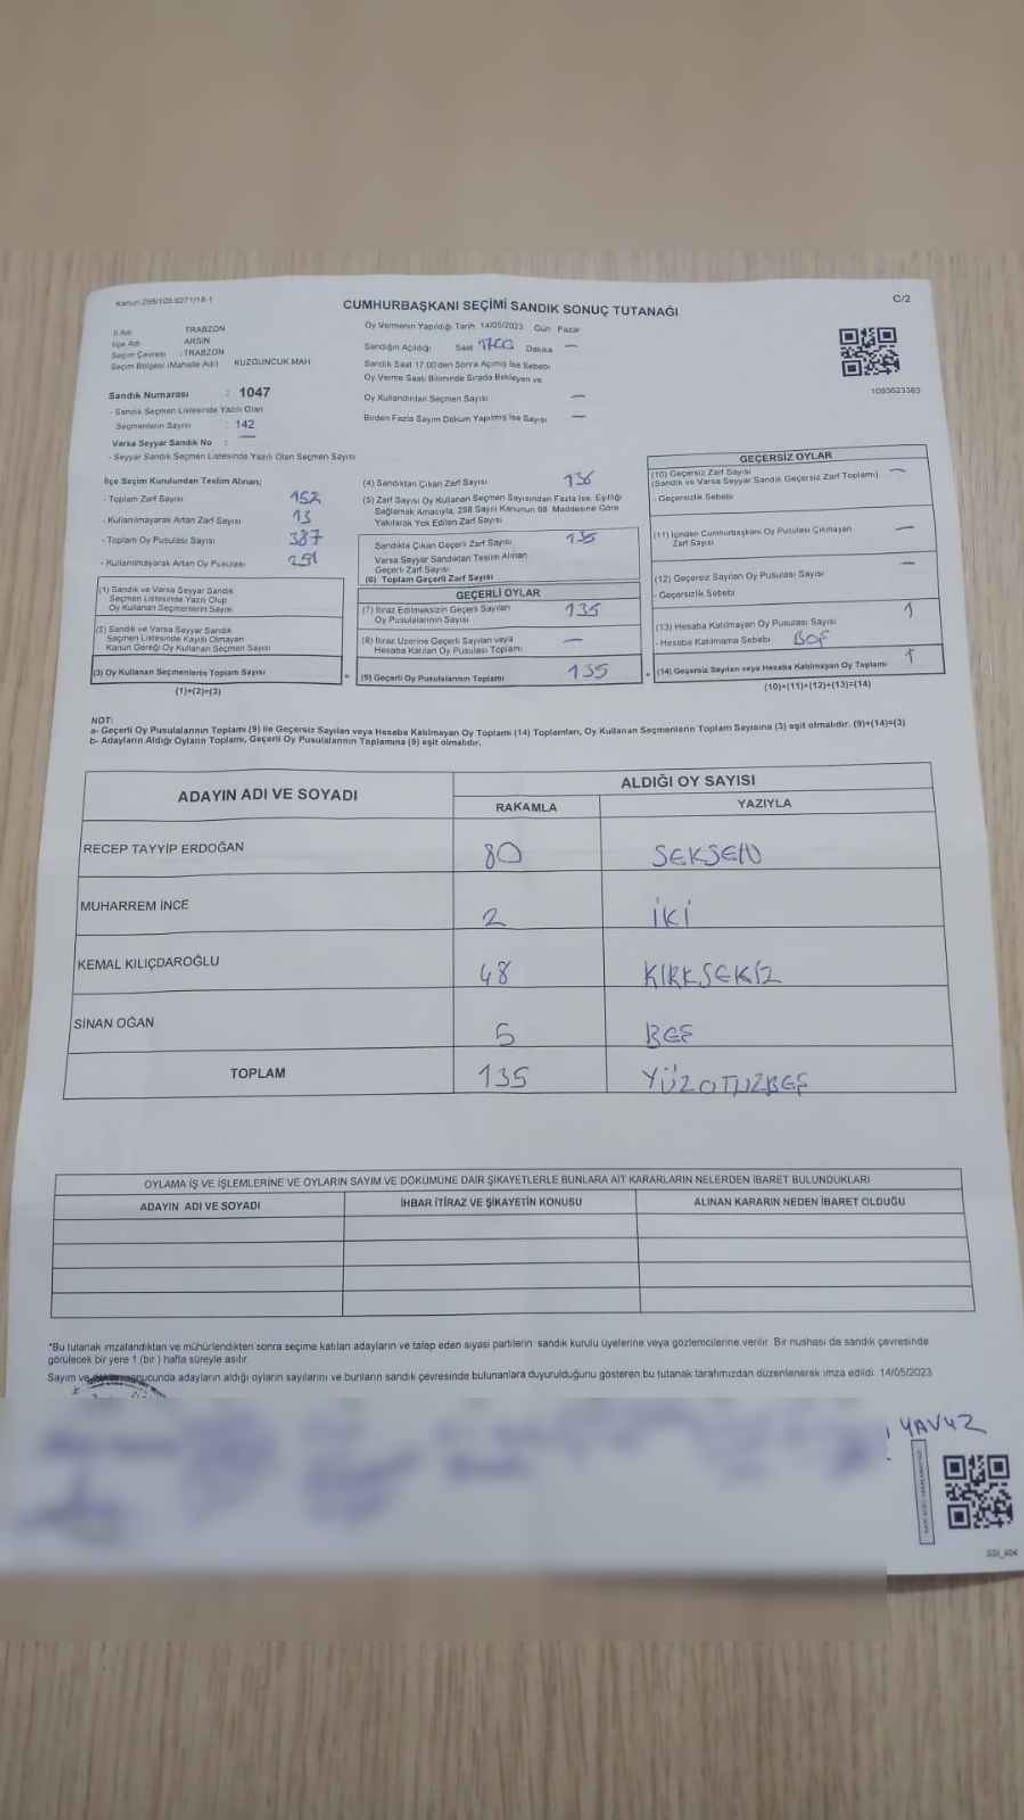 Kanun:298/103-6271/18-1
CUMHURBAŞKANI SEÇİMİ SANDIK SONUÇ TUTANAĞI
C/2
İl Adı : TRABZON
İlçe Adı : ARSİN
Seçim Çevresi : TRABZON
Seçim Bölgesi (Mahalle Adı) : KUZGUNCUK MAH
Sandık Numarası : 1047
- Sandık Seçmen Listesinde Yazılı Olan
Seçmenlerin Sayısı : 142
Varsa Seyyar Sandık No : —
- Seyyar Sandık Seçmen Listesinde Yazılı Olan Seçmen Sayısı
Oy Vermenin Yapıldığı Tarih 14/05/2023 Gün Pazar
Sandığın Açıldığı Saat 1700 Dakika —
Sandık Saat 17.00'den Sonra Açılmış İse Sebebi
Oy Verme Saati Bitiminde Sırada Bekleyen ve
Oy Kullandırılan Seçmen Sayısı —
Birden Fazla Sayım Döküm Yapılmış İse Sayısı —
1093623363
İlçe Seçim Kurulundan Teslim Alınan;
- Toplam Zarf Sayısı 152
- Kullanılmayarak Artan Zarf Sayısı 13
- Toplam Oy Pusulası Sayısı 387
- Kullanılmayarak Artan Oy Pusulası 251
(1) Sandık ve Varsa Seyyar Sandık
Seçmen Listesinde Yazılı Olup
Oy Kullanan Seçmenlerin Sayısı
(2) Sandık ve Varsa Seyyar Sandık
Seçmen Listesinde Kaydı Olmayan
Kanun Gereği Oy Kullanan Seçmen Sayısı
(3) Oy Kullanan Seçmenlerin Toplam Sayısı
(1)+(2)=(3)
(4) Sandıktan Çıkan Zarf Sayısı 136
(5) Zarf Sayısı Oy Kullanan Seçmen Sayısından Fazla İse, Eşitliği
Sağlamak Amacıyla, 298 Sayılı Kanunun 98. Maddesine Göre
Yakılarak Yok Edilen Zarf Sayısı
Sandıkta Çıkan Geçerli Zarf Sayısı 135
Varsa Seyyar Sandıktan Teslim Alınan
Geçerli Zarf Sayısı
(6) Toplam Geçerli Zarf Sayısı
GEÇERLİ OYLAR
(7) İtiraz Edilmeksizin Geçerli Sayılan
Oy Pusulalarının Sayısı 135
(8) İtiraz Üzerine Geçerli Sayılan veya
Hesaba Katılan Oy Pusulası Toplamı —
(9) Geçerli Oy Pusulalarının Toplamı 135
GEÇERSİZ OYLAR
(10) Geçersiz Zarf Sayısı
(Sandık ve Varsa Seyyar Sandık Geçersiz Zarf Toplamı) —
- Geçersizlik Sebebi
(11) İçinden Cumhurbaşkanı Oy Pusulası Çıkmayan
Zarf Sayısı —
(12) Geçersiz Sayılan Oy Pusulası Sayısı —
- Geçersizlik Sebebi
(13) Hesaba Katılmayan Oy Pusulası Sayısı 1
- Hesaba Katılmama Sebebi BOŞ
(14) Geçersiz Sayılan veya Hesaba Katılmayan Oy Toplamı 1
(10)+(11)+(12)+(13)=(14)
NOT:
a- Geçerli Oy Pusulalarının Toplamı (9) ile Geçersiz Sayılan veya Hesaba Katılmayan Oy Toplamı (14) Toplamları, Oy Kullanan Seçmenlerin Toplam Sayısına (3) eşit olmalıdır. (9)+(14)=(3)
b- Adayların Aldığı Oyların Toplamı, Geçerli Oy Pusulalarının Toplamına (9) eşit olmalıdır.
ADAYIN ADI VE SOYADI
ALDIĞI OY SAYISI
RAKAMLA YAZIYLA
RECEP TAYYİP ERDOĞAN 80 SEKSEN
MUHARREM İNCE 2 İKİ
KEMAL KILIÇDAROĞLU 48 KIRKSEKİZ
SİNAN OĞAN 5 BEŞ
TOPLAM 135 YÜZOTUZBEŞ
OYLAMA İŞ VE İŞLEMLERİNE VE OYLARIN SAYIM VE DÖKÜMÜNE DAİR ŞİKAYETLERLE BUNLARA AİT KARARLARIN NELERDEN İBARET BULUNDUKLARI
ADAYIN ADI VE SOYADI İHBAR İTİRAZ VE ŞİKAYETİN KONUSU ALINAN KARARIN NEDEN İBARET OLDUĞU
*Bu tutanak imzalandıktan ve mühürlendikten sonra seçime katılan adayların ve talep eden siyasi partilerin sandık kurulu üyelerine veya gözlemcilerine verilir. Bir nüshası da sandık çevresinde
görülecek bir yere 1 (bir) hafta süreyle asılır.
Sayım ve sonucunda adayların aldığı oyların sayılarını ve bunların sandık çevresinde bulunanlara duyurulduğunu gösteren bu tutanak tarafımızdan düzenlenerek imza edildi. 14/05/2023
YAVUZ